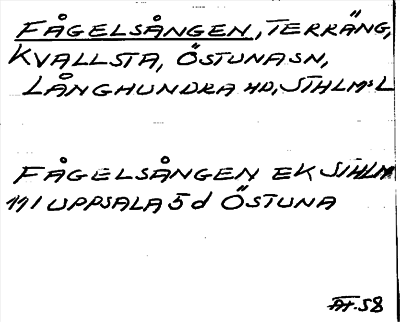 FÅGELSÅNGEN, TERRÄNG,
KVALLSTA, ÖSTUNA SN,
LÅNGHUNDRA HD, STHLMS L
FÅGELSÅNGEN EK STHLM
111 UPPSALA 5 d ÖSTUNA
58